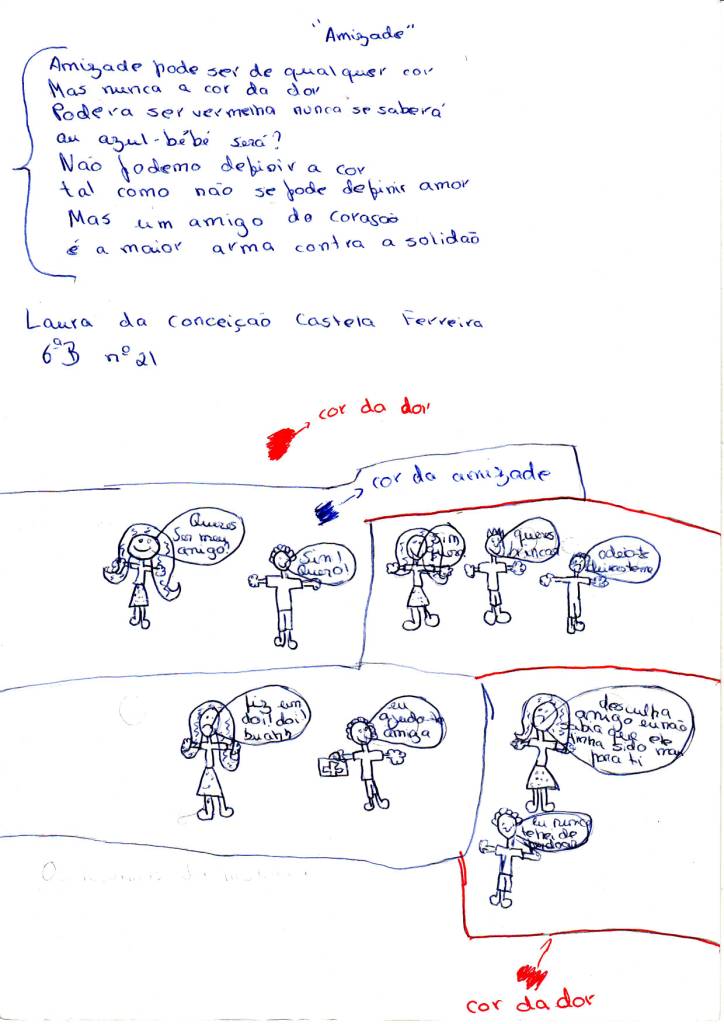 "Amizade"
Amizade pode ser de qualquer cor
Mas nunca a cor da dor
Podera ser vermelha nunca se saberá
au azul-bébé será?
Não podemo definir a cor
tal como não se pode definir amor
Mas um amigo do coração
é a maior arma contra a solidão
Laura da Conceição Castela Ferreira
6ºB nº 21
cor da dor
cor da amizade
Queres
Ser meu
amigo?
Sim!
Quero!
Sim
queres
brincar
odeio-te
fiz um
doi! doi!
buah!!
eu
ajudo-te
amiga
desculpa
amigo eu não
sabia que ele
tinha sido mau
para ti
eu nunca
te hei de
perdoar
cor da dor